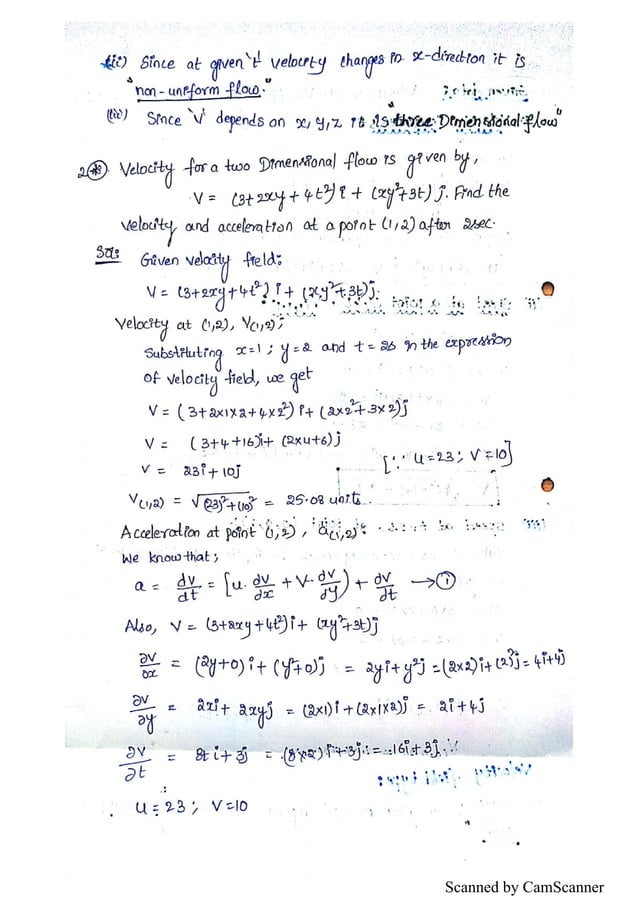 (ii) Since at given 't' velocity changes in x-direction it is
"non-uniform flow."
(iii) Since 'V' depends on x, y, z it is "three Dimensional flow"
2) Velocity for a two Dimensional flow is given by,
V = (3+2xy + 4t²) i + (xy²+3t) j. Find the
velocity and acceleration at a point (1,2) after 2sec.
Sol: Given velocity field:
V = (3+2xy+4t²) i + (xy²+3t)j.
Velocity at (1,2), V(1,2);
Substituting x=1 ; y=2 and t=2s in the expression
of velocity field, we get
V = (3+2x1x2+4x2²) i+(2x2²+3x2)j
V = (3+4+16)i+ (2x4+6) j
V = 23i + 10j [∵ u=23; V=10]
V(1,2) = √(23)²+(10)² = 25.08 units.
Acceleration at point (1,2), a(1,2):
We know that;
a = dv/dt = [u. dv/dx + V. dv/dy) + dv/dt → ①
Also, V = (3+2xy+4t²)i + (xy²+3t)j
∂v/∂x = (2y+0) i + (y²+0)j = 2yi+y²j = (2x2)i+(2²)j = 4i+4j
∂v/∂y = 2xi + 2xyj = (2x1)i + (2x1x2)j = 2i+4j
∂v/∂t = 8t i + 3j = (8x2) i + 3j = 16i + 3j
∴ u = 23 ; V=10
Scanned by CamScanner